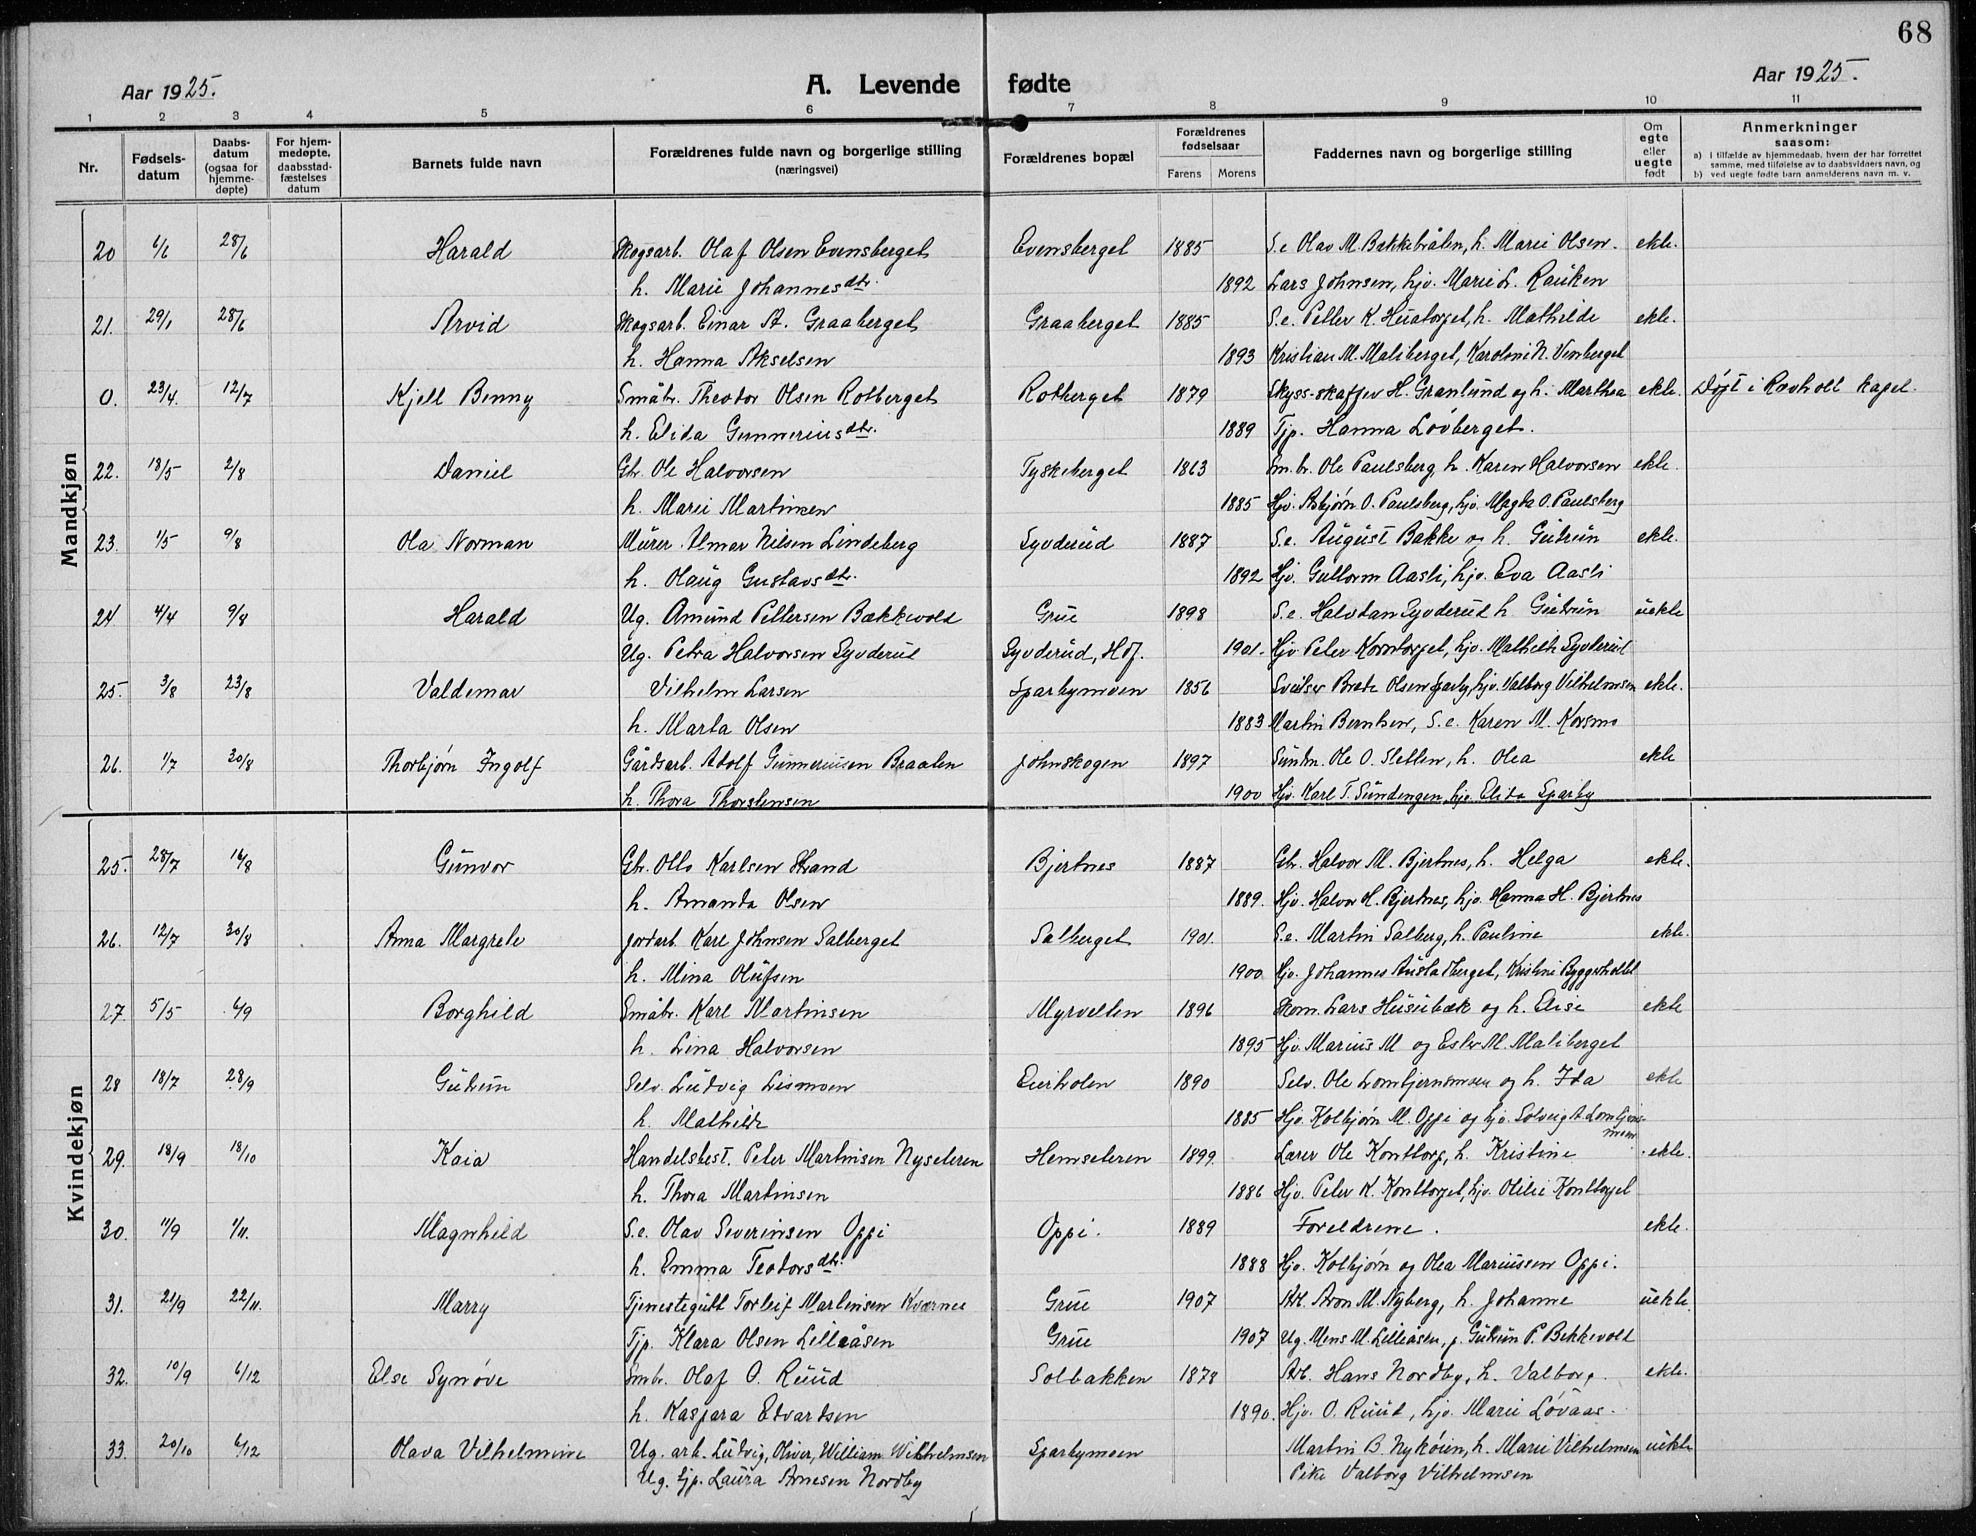 68
Aar 1925.
A. Levende fødte
Aar 1925.
1 2 3 4 5 6 7 8 9 10 11
Nr.
Fødsels-
datum
Daabs-
datum
(ogsaa for
hjemme-
døpte)
For hjem-
medøpte,
daabsstad-
fæstelses
datum
Barnets fulde navn
Forældrenes fulde navn og borgerlige stilling
(næringsvei)
Forældrenes bopæl
Forældrenes
fødselsaar
Farens Morens
Faddernes navn og borgerlige stilling
Om
egte
eller
uegte
født
Anmerkninger
saasom:
a) i tilfælde av hjemmedaab, hvem der har forrettet
samme, med tilføielse av to daabsvidners navn, og
b) ved uegte fødte barn anmelderens navn m. v.
Mandkjøn
20 6/6 28/6 Harald Skogsarb. Olaf Olsen Evensberget Evensberget 1885 S.e Olav M. Bakkebråten, h. Marie Olsen. ekte.
h. Marie Johannesdtr. 1892 Lars Johnsen, hjv. Marie L. Rauken
21. 29/1 28/6 Arvid Skogsarb. Einar A. Graaberget Graaberget 1885 S.e. Petter K. h. Mathilde ekte.
h. Hanna Akselsen 1893 Kristian M. Maliberget, Karoline N. Vemberget
0. 23/4. 12/7 Kjell Benny Småbr. Theodor Olsen Rotberget Rotberget 1879 Skyss-skaffer H. Granlund og h. Marthea ekte. Døpt i Ravholt kapel.
h. Elida Gunneriusdtr. 1889 Tjp. Hanna Lövberget.
22. 18/5 2/8 Daniel Gbr. Ole Halvorsen Tyskeberget 1863 Sm.br. Ole Paulsberg, h. Karen Halvorsen ekte
h. Marie Martinsen 1885 Hjv. Asbjørn O. Paulsberg, hjv. Magda O. Paulsberg
23. 1/5 9/8 Ola Norman Murer Almar Nilsen Lindeberg Syverud 1887 S.e. August Bakke og h. Gudrun ekte.
h. Olaug Gustavsdtr. 1892 Hjv. Guttorm Aasli, hjv. Eva Aasli
24 4/4 9/8 Harald Ug. Amund Pettersen Bækkevold Grue 1898 S.e. Halvdan Syverud h. Gudrun uekte
Ug. Petra Halvorsen Syverud Syverud, Hof. 1901. Hjv Peter Korntorget, hjv. Mathilde Syverud
25. 3/8 23/8 Valdemar Vilhelm Larsen Sparbymoen 1856 Sveiser Brede Olsen Sparby, hjv. Valborg Vilhelmsen ekte.
h. Marta Olsen 1883 Martin Berntsen, S.e. Karen M. Korsmo
26. 1/7 30/8 Thorbjørn Ingolf Gårdsarb. Adolf Gunneriusen Braaten Johnskogen 1897 Ole O. Sletten, h. Olea ekte
h. Thora Thorstensen 1900 Hjv. Karl T. Sundengen, hjv. Elida Sparby
Kvindekjøn
25. 28/7 16/8 Gunvor Gbr. Otto Karlsen Strand Bjertnes 1887 Gbr. Halvor M. Bjertnes, h. Helga ekte.
h. Amanda Olsen 1889. Hjv. Halvor H. Bjertnes, hjv. Hanna H. Bjertnes
26. 12/7 30/8 Anna Margrete Jordarb. Karl Johnsen Salberget Salberget 1901. S.e. Martin Salberg, h. Pauline ekte.
h. Mina Olufsen 1900 Hjv. Johannes Austadberget, Kristine Byggerholtet
27. 5/5 6/9 Borghild Småbr. Karl Martinsen Myrvetten 1896 Skom. Lars Husebæk og h. Elise ekte
h. Lina Halvorsen 1895 Hjv. Marius M og Ester M. Maliberget
28 18/7 28/9 Gudrun Selv. Ludvig Lismoen Eierholen 1890 Selv. Ole Lomtjernsmoen og h. Ida ekte
h. Mathilde 1885 Hjv. Kolbjørn M. Oppi og hjv. Solveig A Lomtjerns-
moen
29. 18/9 18/10 Kaia Handelsbest. Peter Martinsen Nyseteren Hemseteren 1899. Lærer Ole Konttorp, h. Kristine ekte.
h. Thora Martinsen 1886 Hjv. Peter K. Konttorpet, hjv. Otilie Konttorpet
30. 11/9 1/11. Magnhild S.e. Olav Severinsen Oppi Oppi. 1889 Foreldrene. ekte.
h. Emma Teodorsdtr. 1888 Hjv. Kolbjørn og Olea Mariussen Oppi.
31. 21/9 22/11. Marry Tjenestegutt Torleif Martinsen Kværnes Grue 1907 Arb. Aron M. Nyberg, h. Johanne uekte.
Tjp. Klara Olsen Lilleåsen Grue 1907 Ug. Mons M. Lilleåsen, p. Gudrun P. Bekkevold
32. 10/9 6/12 Else Synøve Smbr. Olaf O. Ruud Solbakken 1878 Arb. Hans Nordby, h. Valborg. ekte.
h. Kaspara Edvardsen 1890. Hjv. O. Ruud, hjv. Marie Løvaas.
33. 20/10 6/12 Olava Vilhelmine Ug. arb. Ludvig, Oliver, William Vilhelmsen Sparbymoen Martin B. Nykøien, h. Marie Vilhelmsen uekte
Ug. tjp. Laura Arnesen Nordby Pike Valborg Vilhelmsen